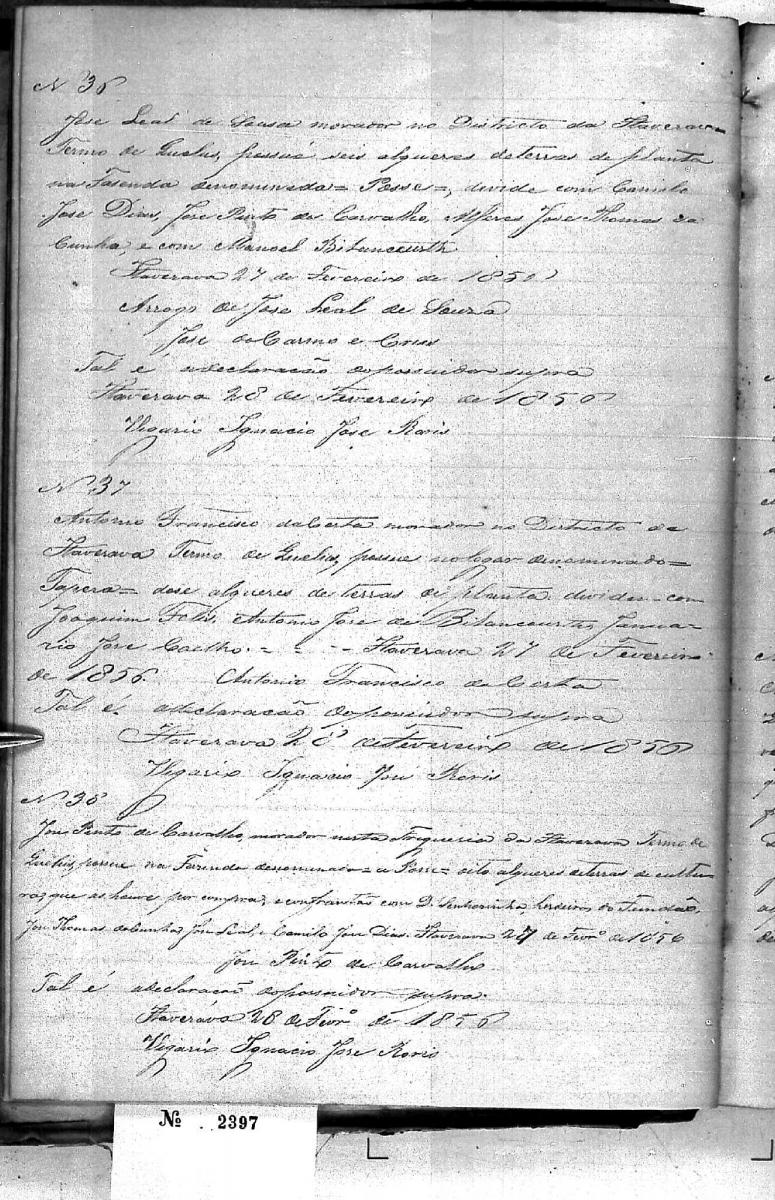 N 36
Jose Leal de Sousa morador no Districto da Itaverava
Termo de Quelus, possue seis alqueres de terras de planta
na Fasenda denominada = Posse =, divide com Camilo
Jose Dias, Jose Pinto de Carvalho, Alferes Jose Thomas da
Cunha, e com Manoel Bitancourth
Itaverava 27 de Fevereiro de 1856
Arrogo de Jose Leal de Souza
Jose do Carmo e Cruz
Tal é a declaração do possuidor supra
Itaverava 28 de Fevereiro de 1856
Vigario Ignacio Jose Roris
N 37
Antonio Francisco da Certa morador no Districto de
Itaverava Termo de Quelus, possue no logar denominado =
Tapera = dose alqueres de terras de planta. dividem com
Joaquim Felis, Antonio Jose de Bitancourth, Janua-
rio Jose Coelho. = = - - Itaverava 27 de Fevereiro
de 1856. Antonio Francisco da Certa
Tal é a declaração do possuidor supra
Itaverava 28 de Fevereiro de 1856
Vigario Ignacio Jose Roris
N 38
Jose Pinto de Carvalho, morador nesta Freguesia da Itaverava Termo de
Quelus, possue na Fazenda denominada = a Posse = oito alqueres de terras de cultu-
ra, que as houve por compra, e confrontão com D. Senhorinha, herdeiros do Fundão,
Jose Thomas da Cunha, Jose Leal, e Camilo Jose Dias. Itaverava 27 de Fevr.º de 1856
Jose Pinto de Carvalho
Tal é a declaração do possuidor supra.
Itaverava 28 de Fevr.º de 1856
Vigario Ignacio Jose Roris
Nº 2397